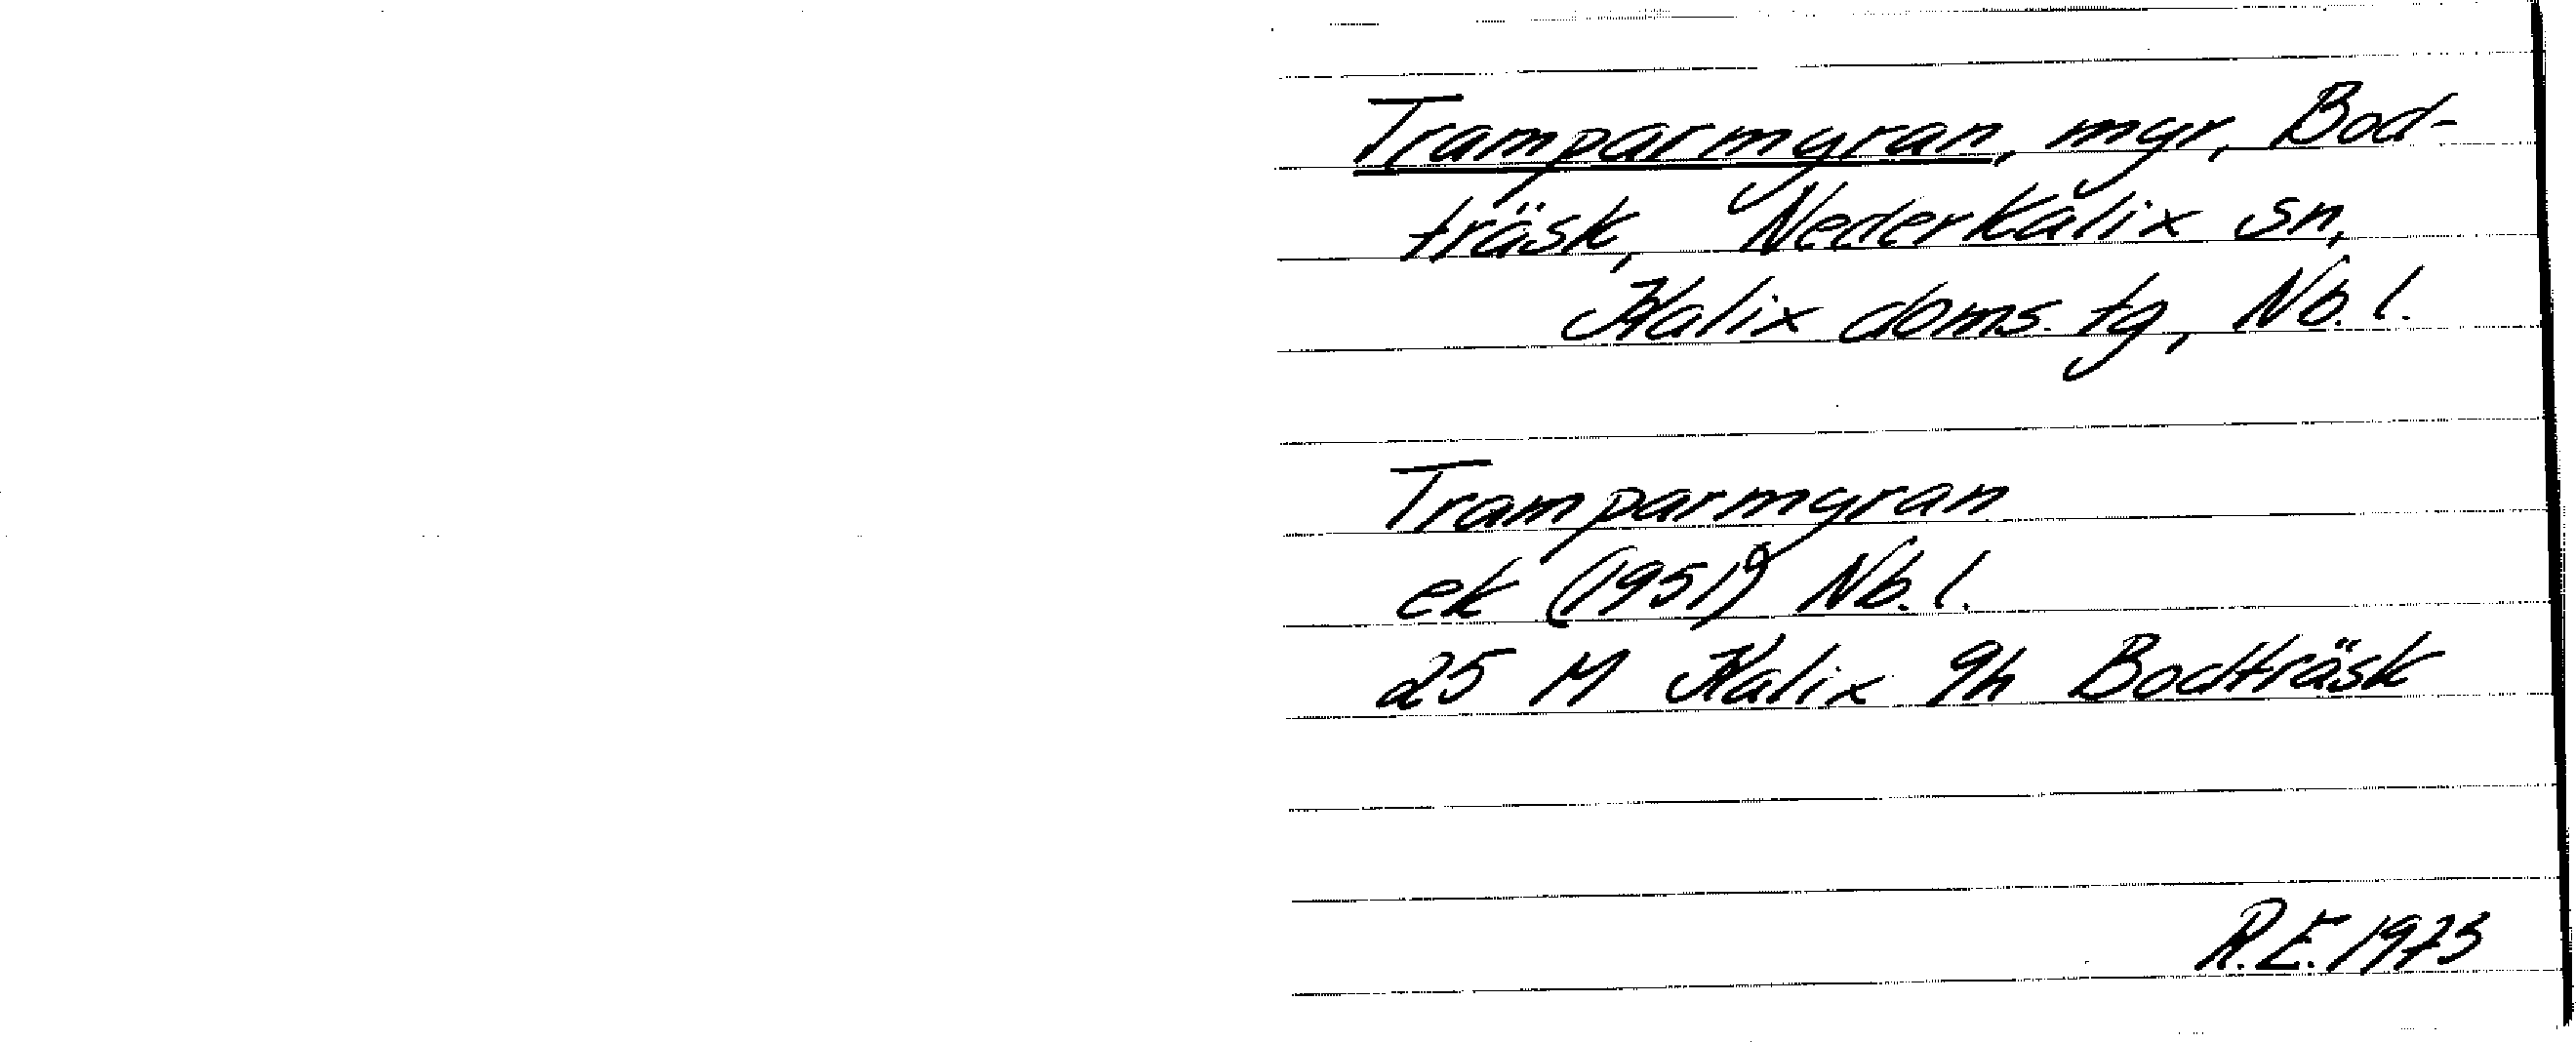 Tramparmyran, myr, Bod-
träsk, Nederkalix sn,
Kalix doms. tg, Nb. l.
Tramparmyran
ek (1951) Nb. l.
25 M Kalix 9h Bodträsk
R.E. 1973